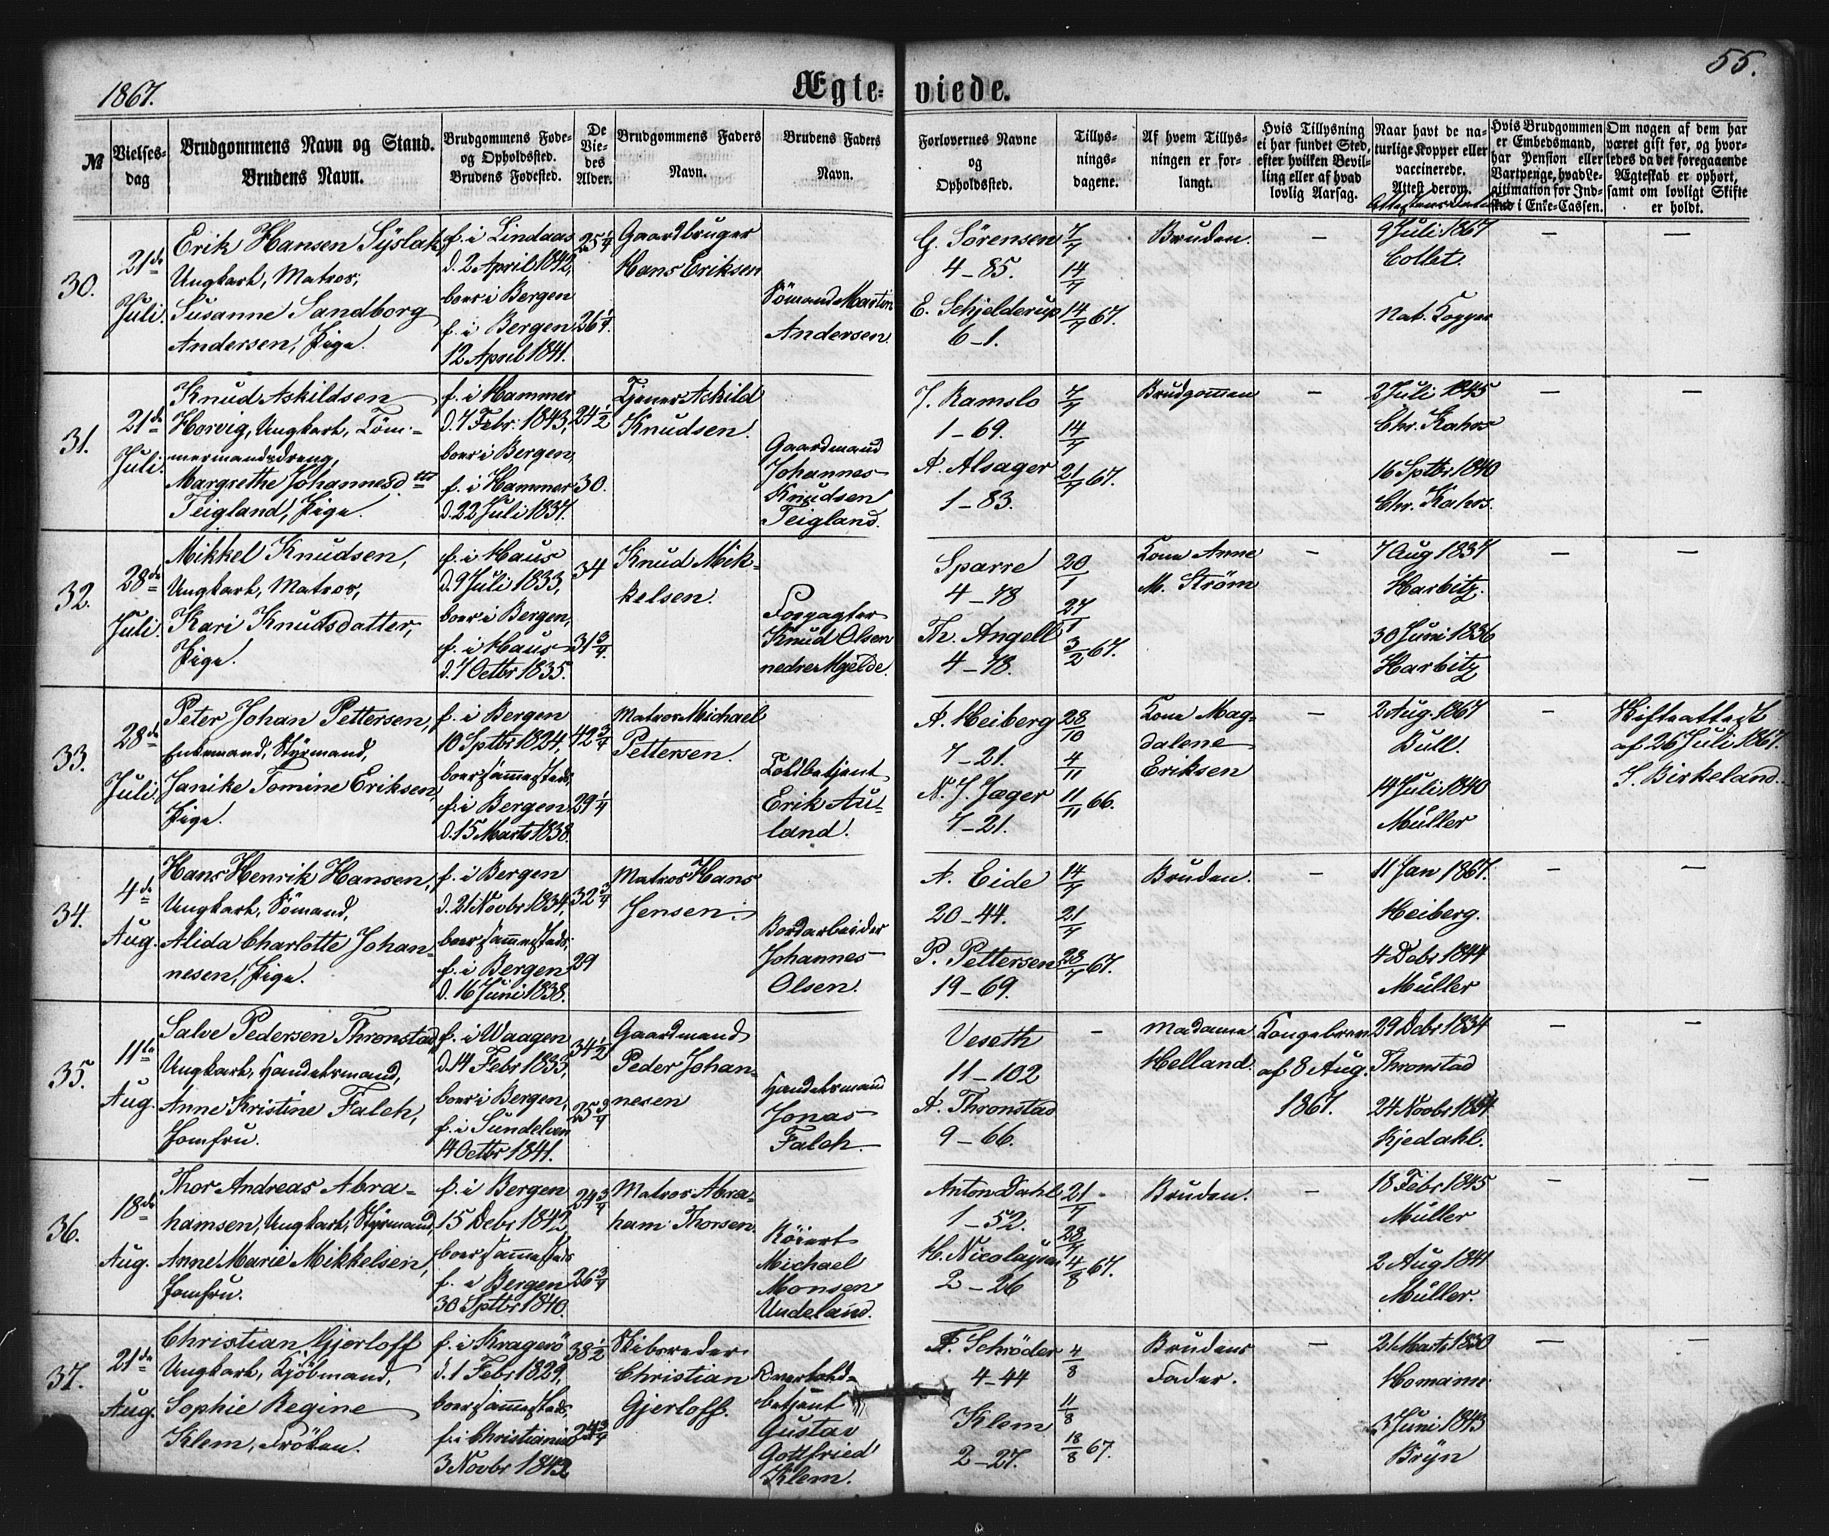 1867.
Ægteviede.
55.
№
Vielsesdag
Brudgommens Navn og Stand.
Brudens Navn.
Brudgommens Fødeog Opholdssted.
Brudens Fødested.
De Viedes Alder.
Brudgommens Faders Navn.
Brudens Faders Navn.
Forlovernes Navne og Opholdssted.
Tillysningsdagene.
Af hvem Tillysningen er forlangt.
Hvis Tillysning ei har fundet Sted, efter hvilken Bevilling eller af hvad lovlig Aarsag.
Naar havt de naturlige Kopper eller vaccinerede. Attest derom.
Attestens Datum
Hvis Brudgommen er Embedsmand, har Pension eller Vartpenge, hvad Legitimation for Indskud i Enke-Cassen.
Om nogen af dem har været gift før, og hvorledes da det foregaaende Ægteskab er ophørt, samt om lovligt Skifte er holdt.
30.
21de Juli.
Erik Hansen Syslak,
Ungkarl, Matros,
Susanne Sandborg
Andersen, Pige.
f. i Lindaas
d. 2 April 1842,
boer i Bergen
f. i Bergen
12 April 1841.
25 1/4
26 1/4
Gaardbruger
Hans Eriksen
Sømand Martin
Andersen
G. Sørensen
4-85.
E. Schjelderup
6-1.
7/7
14/7
14/7 67.
Bruden.
—
9 Juli 1867
Collet.
Nat. Kopper
—
—
31.
21de Juli.
Knud Askildsen
Horvig, Ungkarl, Tømmermandsdreng,
Margrethe Johannesd.tter
Teigland, Pige.
f. i Hammer
d. 7 Febr. 1843,
boer i Bergen,
f. i Hammer
d. 22 Juli 1837.
24 1/2
30.
Tjener Askild
Knudsen.
Gaardmand
Johannes
Knudsen
Teigland.
J. Ramslo
1-69.
A. Alsager
1-83.
7/7
14/7
21/7 67.
Brudgommen
—
2 Juli 1845
Chr. Kahrs
16 Sptbr 1840
Chr. Kahrs.
—
—
32.
28de Juli.
Mikkel Knudsen,
Ungkarl, Matros,
Kari Knudsdatter,
Pige.
f. i Haus
d. 9 Juli 1833,
boer i Bergen,
f. i Haus
d. 7 Octbr 1835.
34
31 3/4
Knud Mikkelsen.
Forpagter
Knud Olsen
nedre Mjelde.
Sparre
4-78
Th. Angell
4-78.
20/1
27/1
3/2 67.
Kone Anne
M. Strøm
—
7 Aug 1837
Harbitz.
30 Juni 1836
Harbitz
—
—
33.
28de Juli.
Peter Johan Pettersen,
Enkemand, Styrmand,
Janike Tomine Eriksen,
Pige.
f. i Bergen
10 Sptbr 1824,
boer sammesteds
f. i Bergen
d. 15 Marts 1838.
42 3/4
29 1/4
Matros Michael
Pettersen.
Toldbetjent
Erik Auland.
A. Heiberg
7-21.
N. J. Jæger
7-21.
28/10
4/11
11/11 66.
Kone Magdalene
Eriksen
—
2 Aug. 1867
Bull.
14 Juli 1840
Müller
—
Skifteattest
af 26 Juli 1867.
S. Birkeland.
34.
4de Aug.
Hans Henrik Hansen,
Ungkarl, Sømand,
Alida Charlotte Johannesen, Pige.
f. i Bergen
d. 21 Novbr 1834,
boer sammesteds,
f. i Bergen
d. 16 Juni 1838.
32 3/4
29
Matros Hans
Jensen.
Bordarbeider
Johannes
Olsen.
A. Eide
20-44.
P. Pettersen
19-69.
14/7
21/7
28/7 67.
Bruden.
—
11 Jan 1867.
Heiberg.
4 Debr 1844
Müller
—
—
35.
11te Aug.
Salve Pedersen Thronstad,
Ungkarl, Handelsmand,
Anne Kristine Falch,
Jomfru.
f. i Waagen
d. 14 Febr 1833,
boer i Bergen,
f. i Sundelven
14 Octbr 1841.
34 1/2
25 3/4
Gaardmand
Peder Johannesen
Handelsmand
Jonas
Falch.
Veseth
11-102
A. Thronstad
9-66.
—
Madame
Helland.
Kongebrev
af 8 Aug.
1867.
29 Debr 1834
Thronstad
24 Novbr 1854
Kjedahl.
—
—
36.
18de Aug.
Thor Andreas Abrahamsen, Ungkarl, Styrmand,
Anne Marie Mikkelsen,
Jomfru.
f. i Bergen
15 Debr 1842
boer sammesteds
f. i Bergen
30 Sptbr 1840.
24 3/4
26 3/4
Matros Abraham Thorsen
Røiert
Michael
Monsen
Undeland.
Anton Dahl
1-52.
H. Nicolaysen
2-26
21/7
28/7
4/8 67.
Bruden.
—
18 Febr 1845
Müller
2 Aug 1841
Müller.
—
—
37.
21de Aug.
Christian Gjerloff
Ungkarl, Kjøbmand,
Sophie Regine
Klem, Frøken.
f. i Kragerø
d. 1 Febr 1829,
boer sammesteds,
f. i Christiania
3 Novbr 1842
38 1/2
24 3/4
Skibsreder
Christian
Gjerloff.
Overtoldbetjent
Gustav
Gottfried
Klem.
F. Schrøder
4-44
Klem
2-27.
4/8
11/8
18/8 67.
Brudens
Fader.
—
21 Marts 1830
Homann
3 Juni 1843
Bryn
—
—